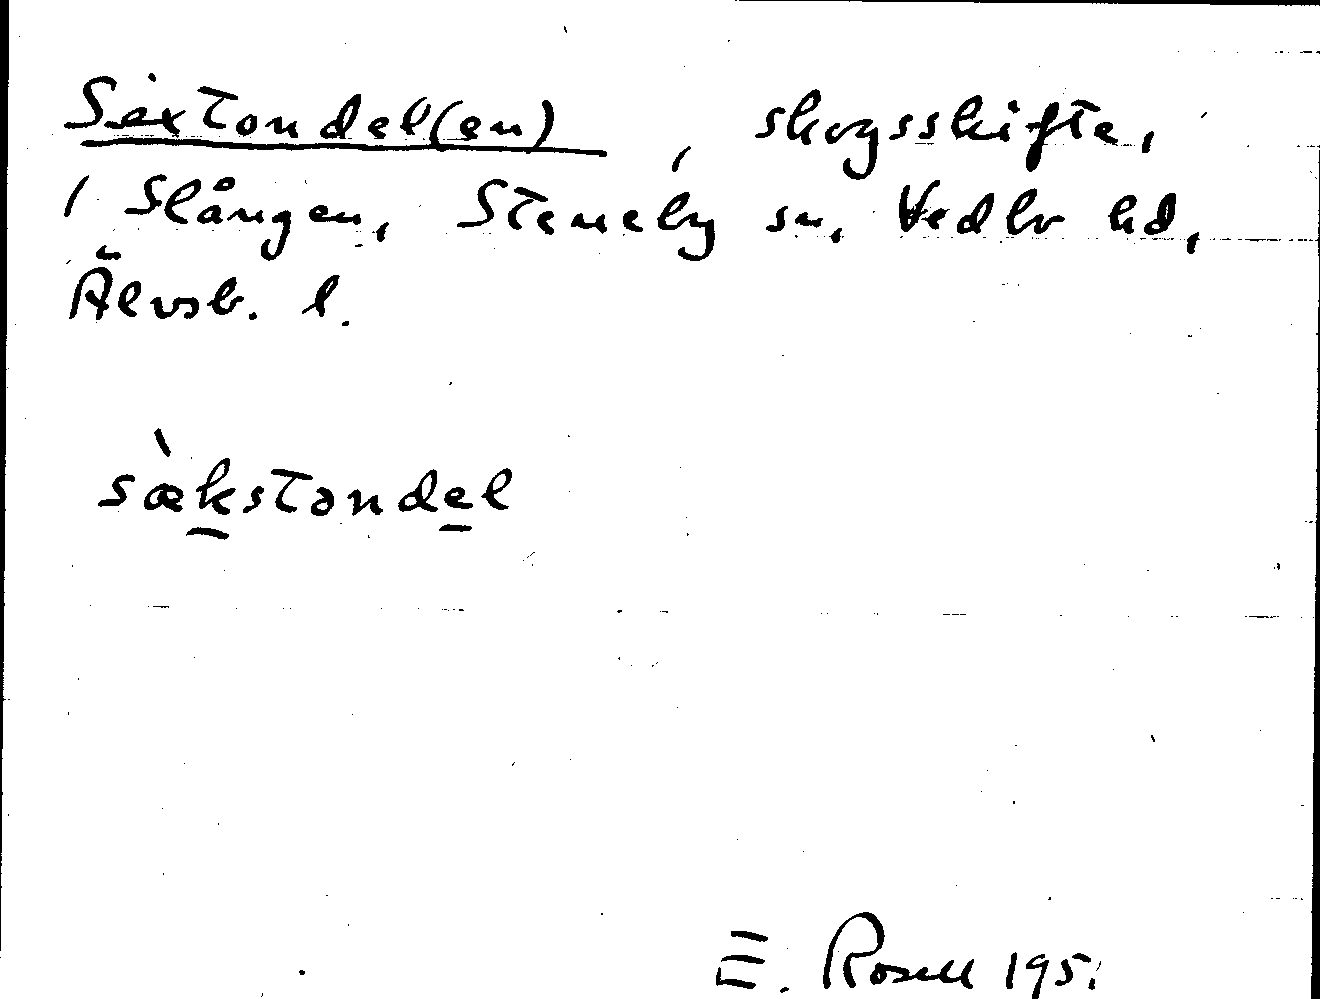 Sextondel(en), skogsskifte,
i Slången, Steneby sn, Vedbo hd,
Älvsb. l.
sæ̀kstəndel
E. Rosell 1951